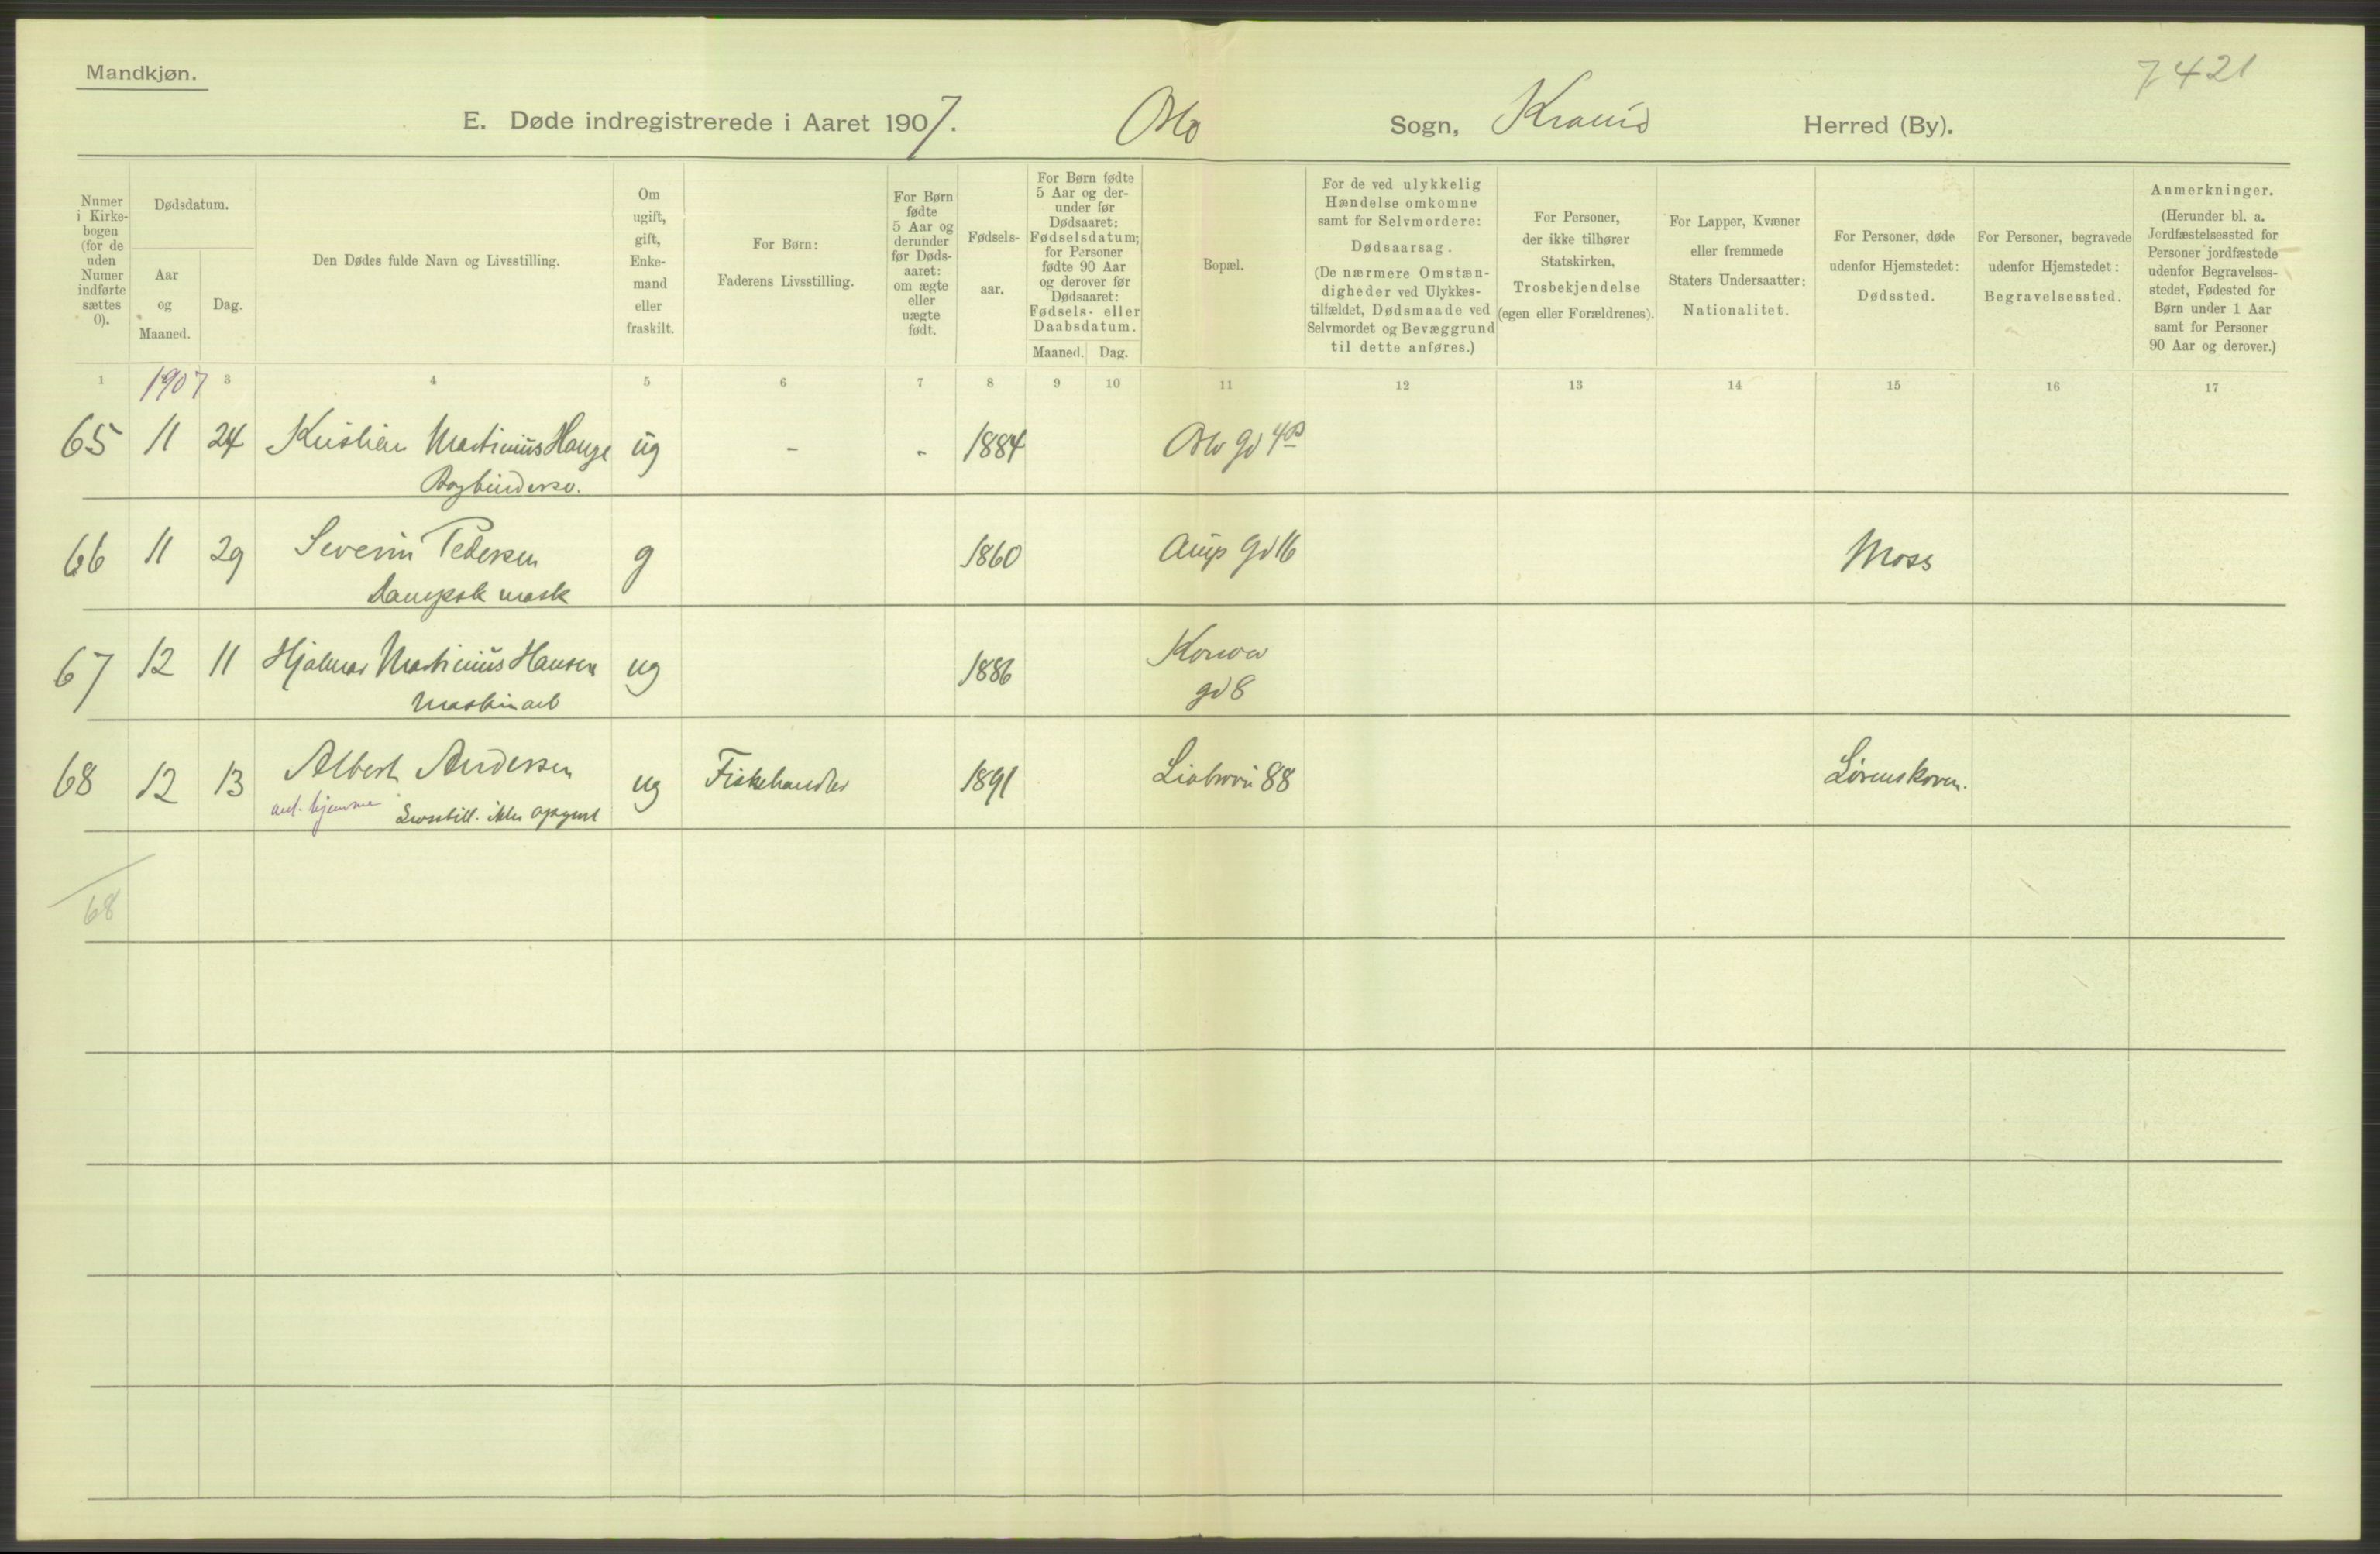 Mandkjøn.
7421
E. Døde indregistrerede i Aaret 1907. Oslo Sogn, Herred (By).
Numer i Kirke-bogen (for de uden Numer indførte sættes 0).
Dødsdatum.
Aar og Maaned.
Dag.
Den Dødes fulde Navn og Livsstilling.
Om ugift, gift, Enke-mand eller fraskilt.
For Børn: Faderens Livsstilling.
For Børn fødte 5 Aar og derunder før Døds-aaret: om ægte eller uægte født.
Fødsels-aar.
For Børn fødte 5 Aar og der-under før Dødsaaret: Fødselsdatum; for Personer fødte 90 Aar og derover før Dødsaaret: Fødsels- eller Daabsdatum.
Maaned. Dag.
Bopæl.
For de ved ulykkelig Hændelse omkomne samt for Selvmordere: Dødsaarsag. (De nærmere Omstæn-digheder ved Ulykkes-tilfældet, Dødsmaade ved Selvmordet og Bevæggrund til dette anføres.)
For Personer, der ikke tilhører Statskirken, Trosbekjendelse (egen eller Forældrenes).
For Lapper, Kvæner eller fremmede Staters Undersaatter: Nationalitet.
For Personer, døde udenfor Hjemstedet: Dødssted.
For Personer, begravede udenfor Hjemstedet: Begravelsessted.
Anmerkninger. (Herunder bl. a. Jordfæstelsessted for Personer jordfæstede udenfor Begravelses-stedet, Fødested for Børn under 1 Aar samt for Personer 90 Aar og derover.)
1 1907 3 4 5 6 7 8 9 10 11 12 13 14 15 16 17
65 11 24 Kristian Martinius Hauge ug - - 1884 Oslo gd
66 11 29 Severin Pedersen g 1860 gd 16 Moss
Dampsk mask
67 12 11 Hjalmar Martinius Hansen ug 1886
Maskinarb gd 8
68 12 13 Albert Andersen ug Fiskehandler 1891 88 Lørenskoven.
hjemme Livsstill. ikke opgivet
68